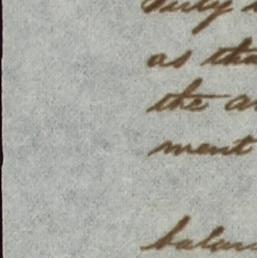 duty
as tha
the a
ment
balan